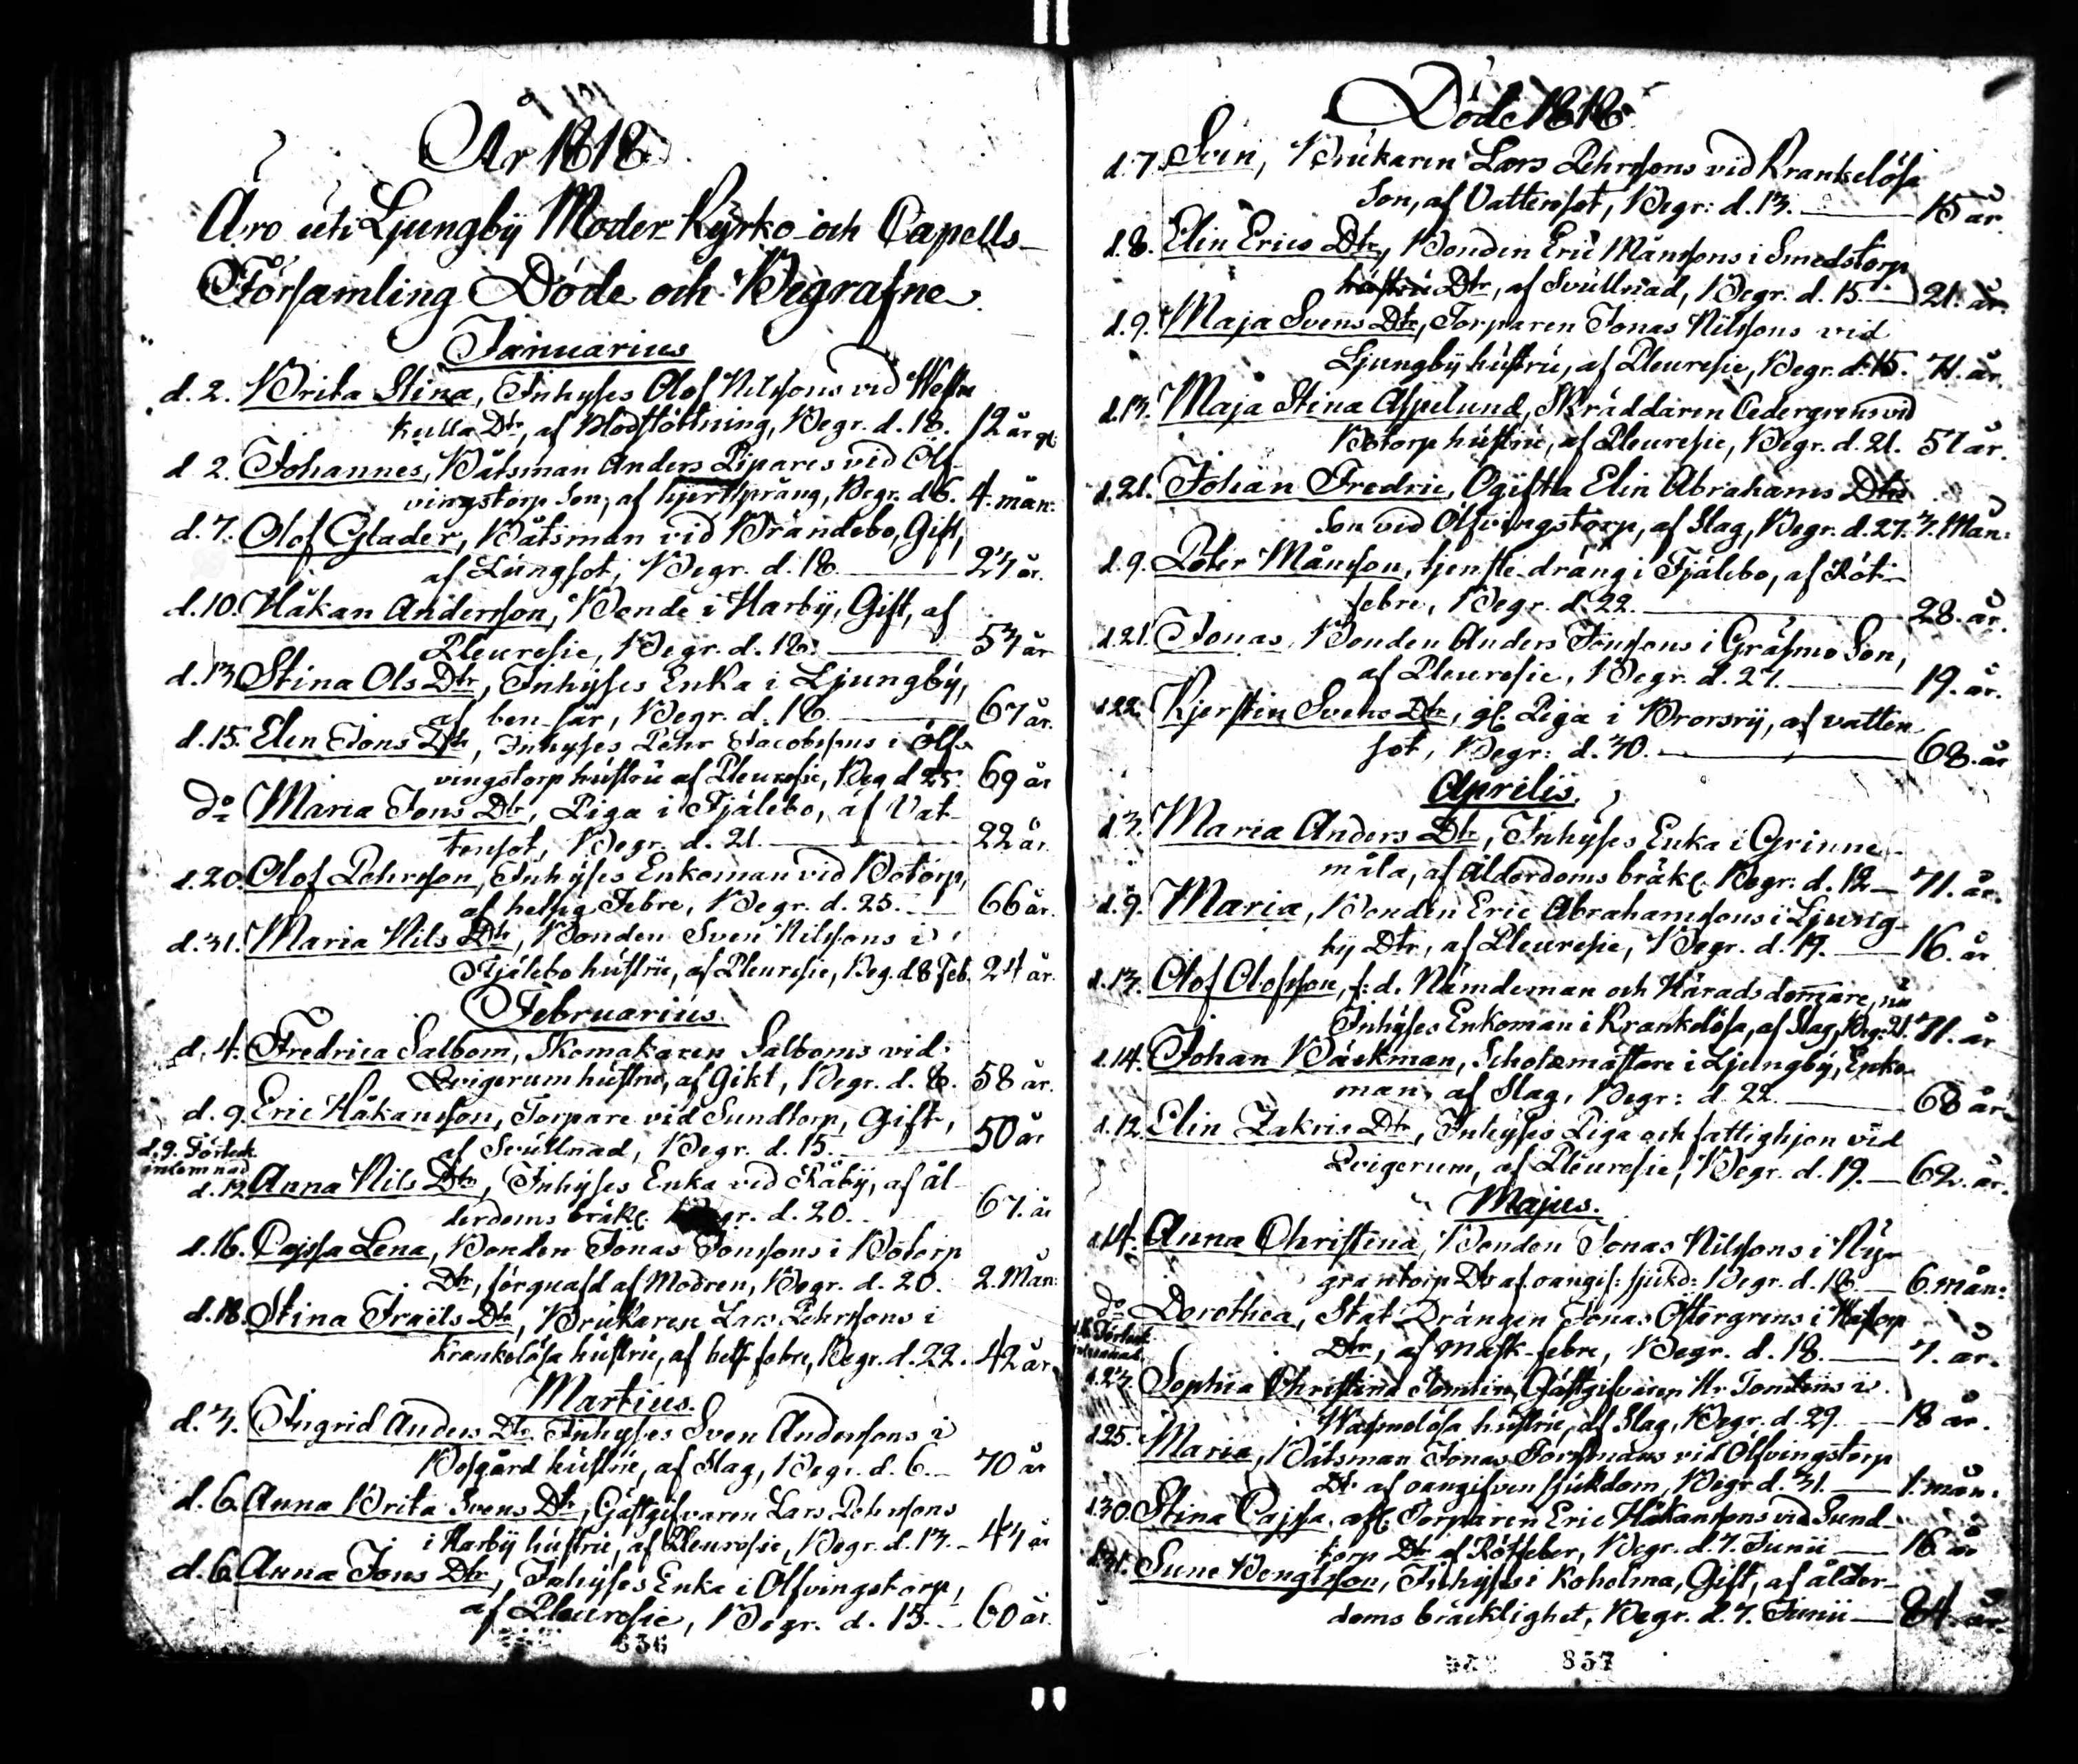 År 1818
Äro uti Ljungby Moder-Kyrko-och Capells-
Församling Döde och Begrafne.
Januarius
d. 2. Brita Stina, Inhyses Olof Nilssons vid
kulla Dtr, af Blodstörtning, Begr. d. 18. 12 år gl.
d. 2. Johannes, Båtsman Anders Pipares vid Ölf-
vingstorp Son, af hjertsprång, Begr. d. 6. 4. mån:
d. 7. Olof Glader, Båtsman vid Brändebo, Gift,
af Lungsot, Begr. d. 18. 27 år.
d. 10. Håkan Andersson, Bonde i Harby, Gift, af
Pleuresie, Begr. d. 18. 57 år
d. 13 Stina Ols Dtr, Inhyses Enka i Ljungby,
af ben-sår, Begr. d. 18. 67 år.
d. 15. Elin Jons Dtr, Inhyses Pehr Jacobssons i Ölf-
vingstorp hustru af Pleuresie, Beg. d 25. 69 år
do Maria Jons Dtr, Piga i Fjälebo, af Vat-
tensot, Begr. d. 21. 22 år.
d. 20. Olof Pehrsson, Inhyses Enkoman vid Botorp,
af hetsig Febre, Begr. d. 25. 66 år.
d. 31. Maria Nils Dtr, Bonden Sven Nilssons i
Fjälebo hustru, af Pleuresie, Beg. d. 8 Feb. 24 år.
Februarius.
d. 4. Fredrica Salbom, Skomakaren Salboms vid
Qvigerum hustru, af Gikt, Begr. d. 8. 58 år.
d. 9. Eric Håkansson, Torpare vid Sundtorp, Gift,
af Svullnad, Begr. d. 15. 50 år
d. 9. Förteck.
inlemnad
d. 12 Anna Nils Dtr, Inhyses Enka vid Råby, af ål-
derdoms bräkl. Begr. d. 20. 67. år
d. 16. Cajsa Lena, Bonden Jonas Jonssons i Botorp
Dtr, förquafd af Modren, Begr. d. 20. 2. Mån:
d. 18. Stina Israëls Dtr, Brukaren Lars Pehrssons i
Krankelösa hustru, af hets. febre, Begr. d. 22. 42 år
Martius.
d. 3. Ingrid Anders Dtr Inhyses Sven Anderssons i
Bosgård hustru, af Slag, Begr. d. 6. 70 år
d. 6. Anna Brita Svens Dtr, Gästgifvaren Lars Pehrssons
i Harby hustru, af Pleuresie, Begr. d. 13. 47 år
d. 6. Anna Jons Dtr, Inhyses Enka i Ölfvingstorp,
af Pleuresie, Begr. d. 15. 60 år.
836
Döde 1818
d. 7. Sven, Brukaren Lars Pehrssons vid Krankelösa
Son, af Vattensot, Begr: d. 13. 15 år.
d. 8. Elin Erics Dtr, Bonden Eric Månssons i Smedstorp
hustru Dtr, af Svullnad, Begr. d. 15. 21. år.
d. 9. Maja Svens Dtr, Torparen Jonas Nilssons vid
Ljungby hustru, af Pleuresie, Begr. d. 15. 71. år
d. 13. Maja Stina Aspelund, Skräddaren Cedergrens vid
Botorp hustru, af Pleuresie, Begr. d. 21. 57 år.
d. 21. Johan Fredric, Ogifta Elin Abrahams Dtrs
Son vid Ölfvingstorp, af Slag, Begr. d. 27. 3. Mån:
d. 9. Peter Månsson, tjenste-dräng i Fjälebo, af Röt-
febre, Begr. d. 22. 28. år.
d. 21. Jonas, Bonden Anders Jonssons i Gräsmo Son,
af Pleuresie, Begr. d. 27. 19. år.
d. 22. Kjerstin Svens Dtr, gl. Piga i Brorsry, af vatten
sot, Begr: d. 30. 68. år
Aprilis.
d. 3. Maria Anders Dtr, Inhyses Enka i Grinne-
måla, af Ålderdoms bräkl. Begr: d. 12 71. år.
d. 9. Maria, Bonden Eric Abrahamssons i Ljung-
by Dtr, af Pleuresie, Begr. d. 19. 16. år
d. 13. Olof Olofsson, f: d. Nämdeman och Häradsdomare, nu
Inhyses Enkoman i Krankelösa, af Slag, Begr. 21. 71. år
d. 14. Johan Bäckman, Scholæmästare i Ljungby, Enko-
man, af Slag, Begr: d. 22. 68 år.
d. 12. Elin Zakris Dtr, Inhyses Piga och fattighjon vid
Qvigerum, af Pleuresie, Begr. d. 19. 62. år.
Majus.
d. 14. Anna Christina, Bonden Jonas Nilssons i Ny-
grantorp Dtr af oangif: sjukd: Begr. d. 18 6. mån:
do Dorothea, Stat Drängen Jonas Östergrens i
Dtr, af mask-febre, Begr. d. 18. 7. år.
Förteck.
d. 23. Sophia Christina Gästgifvaren Hr i
hustru, af Slag, Begr. d. 29. 18 år.
d. 25. Maria, Båtsman Jonas vid Ölfvingstorp
Dtr af oangifven sjukdom, Begr d. 31. 1. mån.
d. 30. Stina Cajsa, afl. Torparen Eric Håkanssons vid Sund-
torp Dtr af Rötfeber, Begr. d. 7. Junii 16. år
d. 31. Sune Bengtsson, Inhyses i Koholma, Gift, af ålder-
doms bräcklighet, Begr. d. 7. Junii 84. år.
837